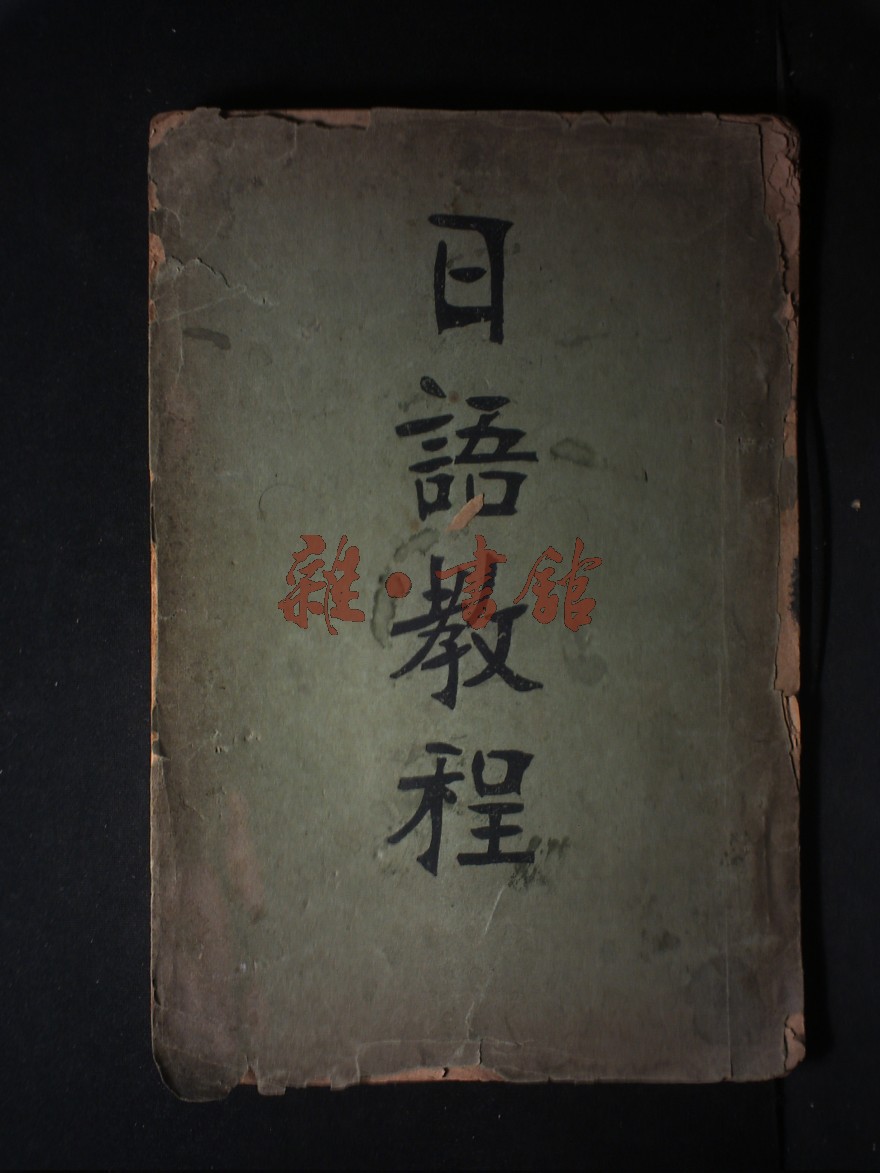 日語教程
雜·書館